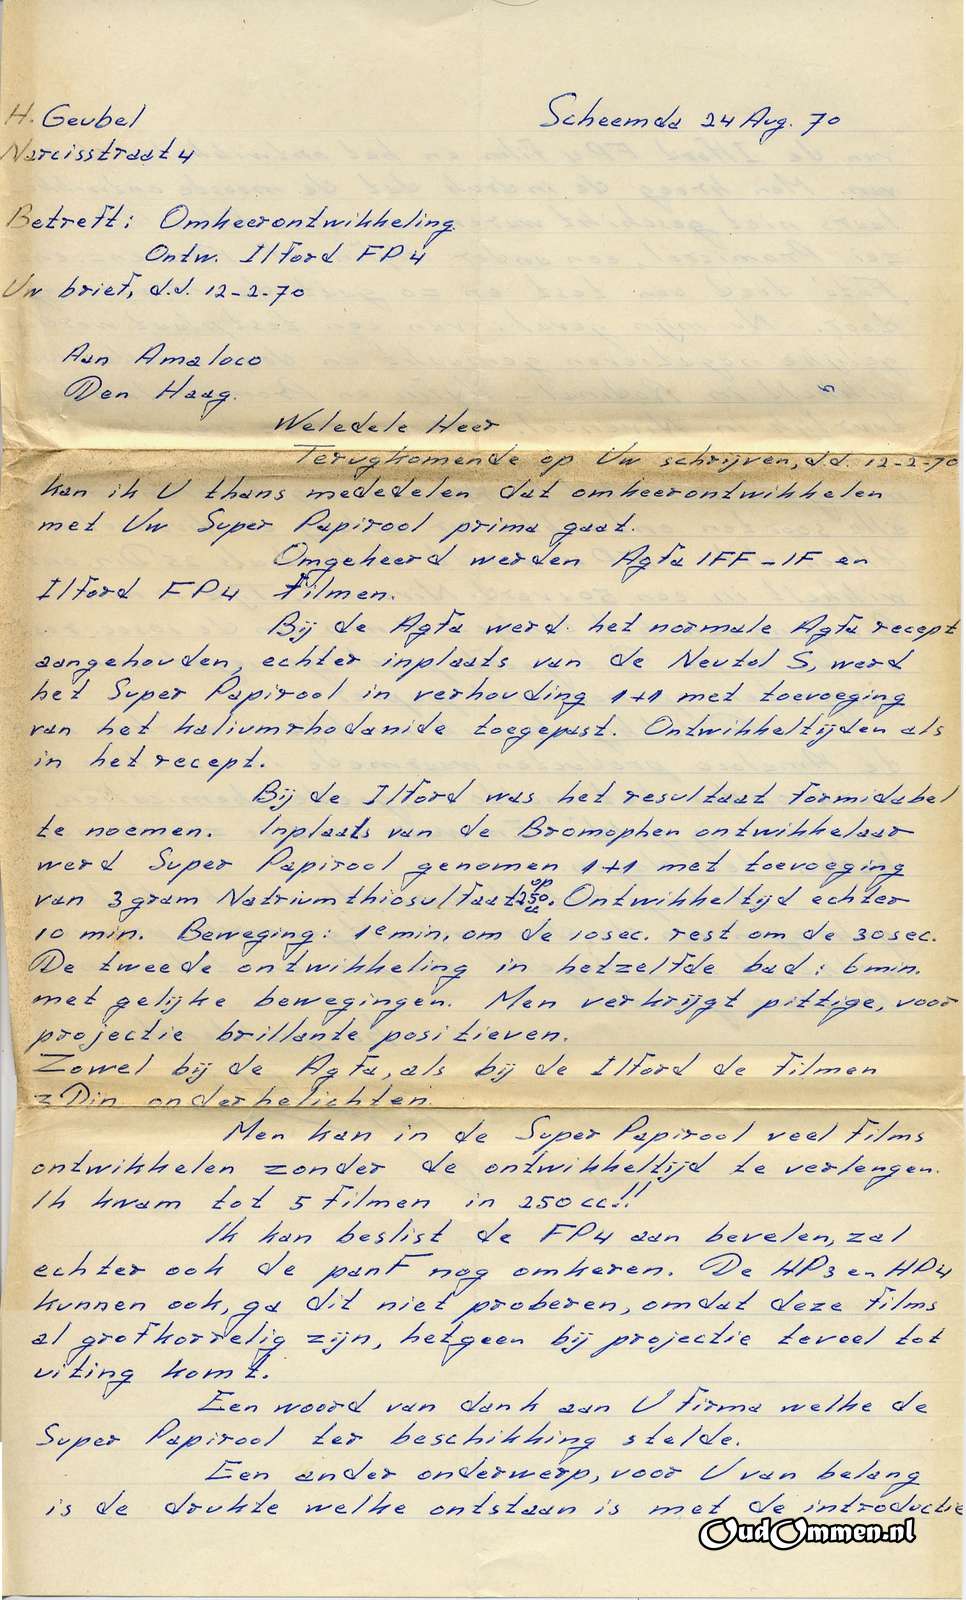 H. Geubel
Scheemda 24 Aug. 70
Narcisstraat 4
Betreft: Omkeerontwikkeling.
Ontw. Ilford FP4
Uw brief, d.d. 12-2-70
Aan Amaloco
Den Haag.
Weledele Heer
Terugkomende op Uw schrijven, d.d. 12-2-70
kan ik U thans mededelen dat omkeerontwikkelen
met Uw Super Papirool prima gaat.
Omgekeerd werden Agfa IFF - IF en
Ilford FP4 Filmen.
Bij de Agfa werd het normale Agfa recept
aangehouden, echter inplaats van de Neutol S, werd
het Super Papirool in verhouding 1+1 met toevoeging
van het kaliumrhodanide toegepast. Ontwikkeltijden als
in het recept.
Bij de Ilford was het resultaat formidabel
te noemen. Inplaats van de Bromophen ontwikkelaar
werd Super Papirool genomen 1+1 met toevoeging
van 3 gram Natriumthiosulfaat op 250 cc. Ontwikkeltijd echter
10 min. Beweging: 1e min, om de 10 sec. rest om de 30 sec.
De tweede ontwikkeling in hetzelfde bad: 6 min.
met gelijke bewegingen. Men verkrijgt pittige, voor
projectie brillante positieven.
Zowel bij de Agfa, als bij de Ilford de filmen
3 Din onderbelichten.
Men kan in de Super Papirool veel Films
ontwikkelen zonder de ontwikkeltijd te verlengen.
Ik kwam tot 5 Filmen in 250 cc!!
Ik kan beslist de FP4 aan bevelen, zal
echter ook de panF nog omkeren. De HP3 en HP4
kunnen ook, ga dit niet proberen, omdat deze films
al grofkorrelig zijn, hetgeen bij projectie teveel tot
uiting komt.
Een woord van dank aan U firma welke de
Super Papirool ter beschikking stelde.
Een ander onderwerp, voor U van belang
is de drukte welke ontstaan is met de introductie
OudOmmen.nl